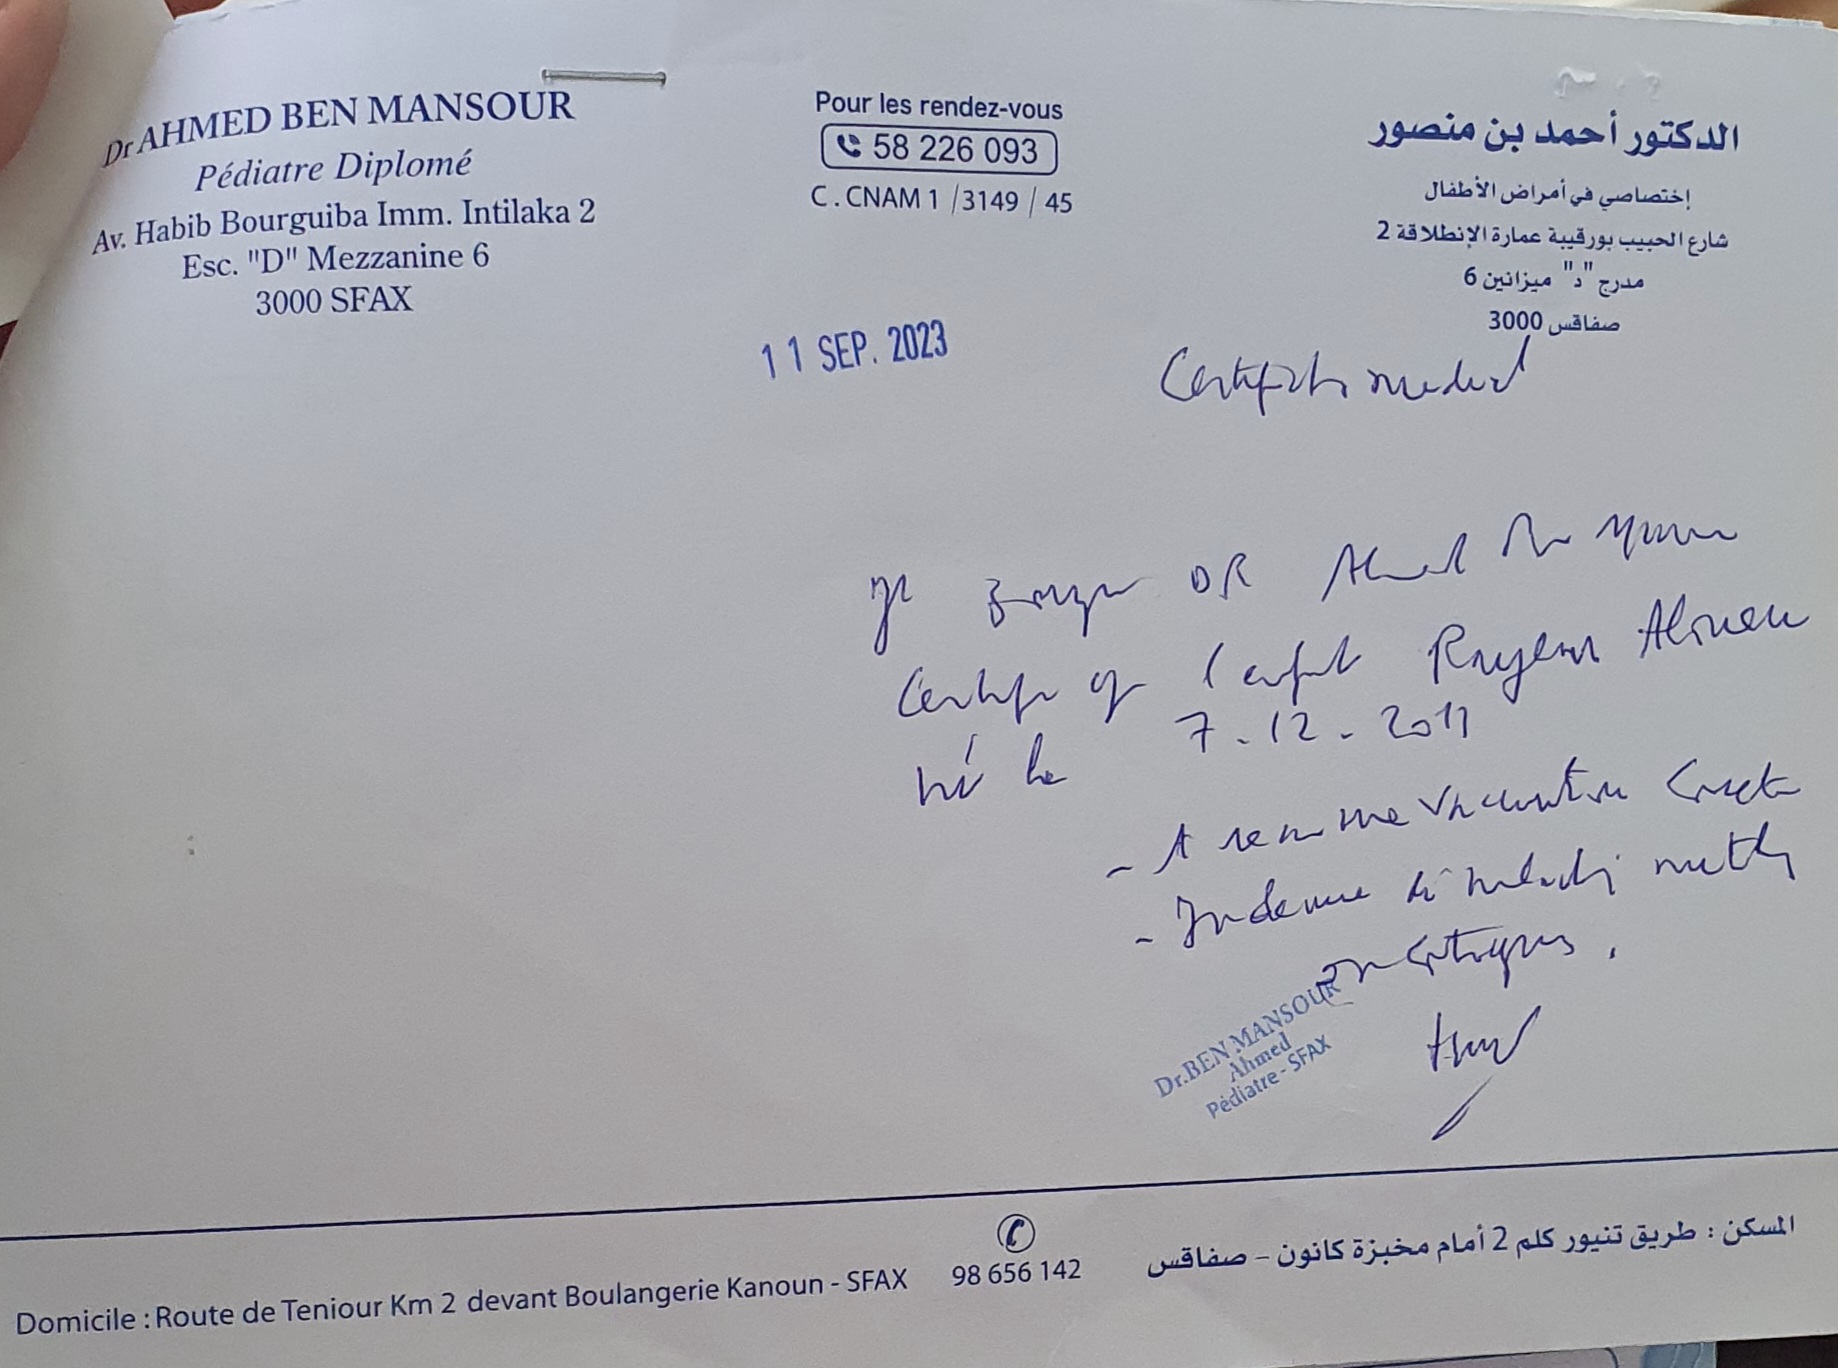 Dr AHMED BEN MANSOUR
Pédiatre Diplomé
Av. Habib Bourguiba Imm. Intilaka 2
Esc. "D" Mezzanine 6
3000 SFAX
Pour les rendez-vous
58 226 093
C . CNAM 1 / 3149 / 45
الدكتور أحمد بن منصور
إختصاصي في أمراض الأطفال
شارع الحبيب بورقيبة عمارة الإنطلاقة 2
مدرج "د" ميزانين 6
صفاقس 3000
11 SEP. 2023
Certificat medical
Je DR Ahmed Ben
Certifie que l'enfant Rayen
né le 7-12-2011
- A vaccination correcte
- Indemne de maladies
Dr.BEN MANSOUR
Ahmed
Pédiatre - SFAX
المسكن : طريق تنيور كلم 2 أمام مخبزة كانون – صفاقس
98 656 142
Domicile : Route de Teniour Km 2 devant Boulangerie Kanoun - SFAX